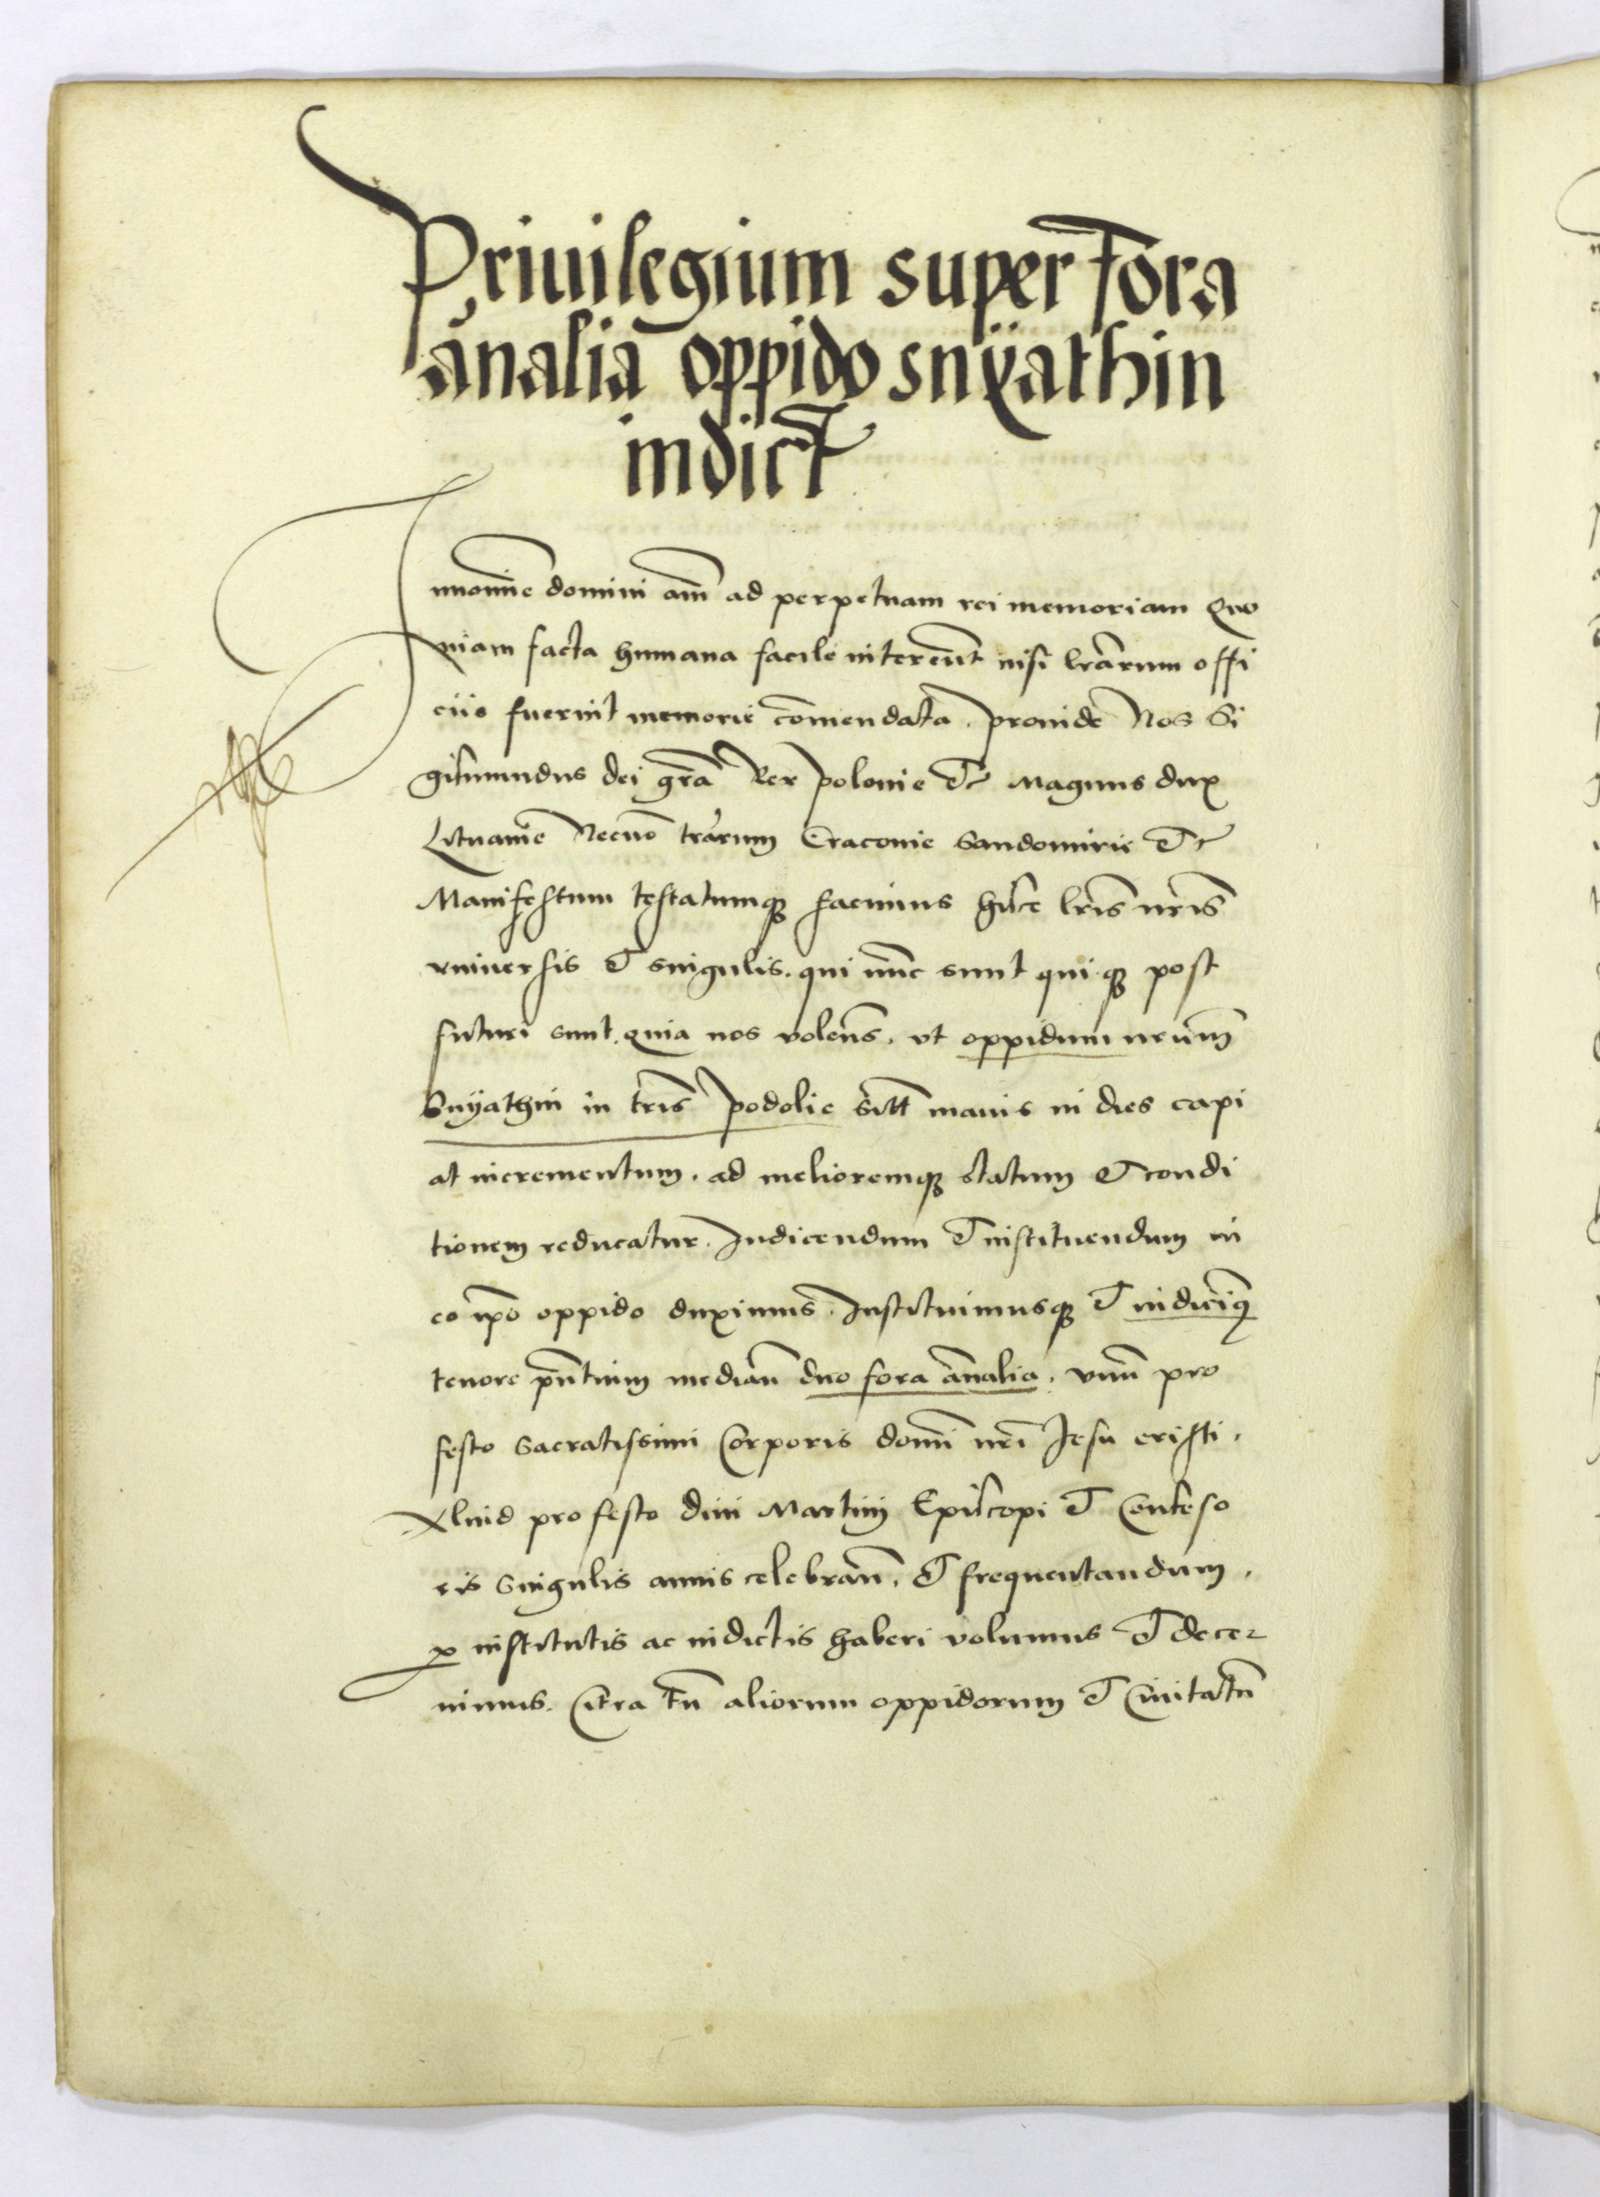 Priuilegium super fora
ān̄alia oppido snÿathin
indict̄
In nomīe domini am̄ ad perpetuam rei memoriam Quo
niam facta humana facile intereūt nisi lr̄arum offi
ciis fuerint memorie com̄endata. proinde Nos Si
gismundus dei gr̄a Rex polonie &c Magnus dux
Lituanīe Necno trārum Cracouie Sandomirie &c
Manifestum testatumqꝫ facimus hīsce lr̄is nr̄is
vniuersis & singulis. qui nūc sunt quiqꝫ post
futuri sunt. quia nos volen̄s. vt oppidum nr̄um̄
Snÿathin in tr̄is podolie sitt̄ maius in dies capi
at incrementum. ad melioremqꝫ statum & condi
tionem reducatur. Indicendum & instituendum in
eo ip̄o oppido duximus. Instituimusqꝫ & indicimꝫ
tenore pn̄tium median̄ duo fora an̄nalia. vnū pro
festo Sacratissimi Corporis domī nr̄i Jesu cristi.
Aliud pro festo diui Martini Epīscopi & Confeso
ris Singulis annis celebran̄. & frequentandum.
ꝓ institutis ac indictis haberi volumus & decer
nimus. Citra tn̄ aliorum oppidorum & Ciuitatū